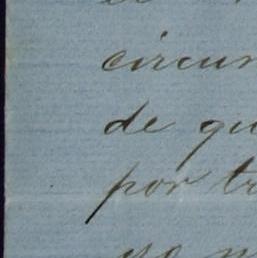 circun
de qu
por tr
yo n